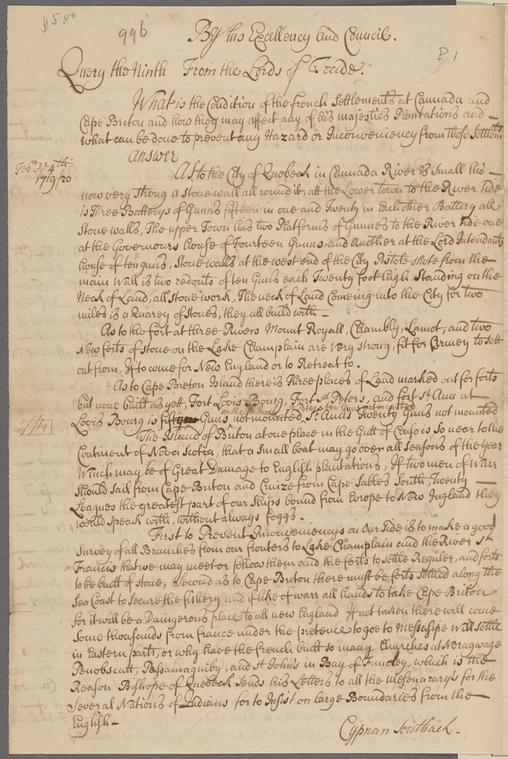 $5.00
996
By his Excellency and Council.
P. 1
Query the Ninth From the Lords of Trade.
What is the Condition of the french Settlements at Cannada and
Cape Briton and how they may affect any of his majesties Plantations and
what can be done to prevent any Hazard or Inconveniency from those Settlements
Answer
Feb:ry 4th:
1719/20
As to the City of Quebeck in Cannada River is Small his
now very Strong a Stone wall all round it, att the Lower town to the River Side
is Three Batterys of Gunns fifteen in one and Twenty in Each other Battery all
Stone walls, The upper Town has two Platforms of Gunnes to the River side one
at the Governours house of Fourteen Gunns and another at the Lord Intendants
house of ten guns, Stone walls at the west end of the City Pistole Shote from the
main wall is two redouts of ten Guns each Twenty foot high Standing on the
Neck of Land, all Stone work, The neck of Land Comeing into the City for two
miles is a Quarey of Stones, they all build with
As to the fort at three Rivers Mount Royall, Chambly, Lamot, and two
New forts of Stone on the Lake Champlain are very Strong, fit for Armey to Sett
out from, If to come for New England or to Retreat to.
As to Cape Breton Island there is Three places of Land marked out for forts
but none built as yett, Fort Lovis Bourg, Fort St Peters, and fort St Ann at
Lovis Bourg is fifty Guns not mounted, St Anns Twenty Guns not mounted
The Island of Briton at one place in the Gutt of Canso is So near to the
Continent of Nova Scotia, that a Small boat may go over all Seasons of the Year
Which may be of Great Damage to English plantations, If two men of Warr
Should Sail from Cape Briton and Cruize from Cape Sables South, Twenty
Leagues the greatest part of our Ships bound from Europe to New England they
would Speak with, without always foggs.
First to Prevent Inconveniencys on our Side is to make a good
Survey of all Branches from our fronters to Lake Champlain and the River St
Francis that we may meet or follow them and the forts to Settle Reguler, and forts
to be built of Stone, Second as to Cape Briton there must be forts Settled along the
Sea Coast to Secure the fishery and if like of warr all hands to take Cape Briton
for it will be a Dangerous place to all new England If not taken there will come
Some thousands from france under the pretence to goe to Messasipe will Settle
in Eastern parts, or why have the french built so many Churches at Noragwage
Penobscutt, Passamaquiby, and St John's in Bay of Funddey, which is the
Reason Bishope of Quebeck Sends his Letters to all the
Several Nations of Indians for to Insist on large Boundaries from the
English.
Cyprian Southack.